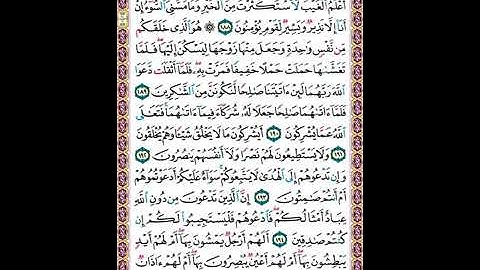 أَعْلَمُ ٱلْغَيْبَ لَٱسْتَكْثَرْتُ مِنَ ٱلْخَيْرِ وَمَا مَسَّنِىَ ٱلسُّوٓءُ إِنْ
أَنَا۠ إِلَّا نَذِيرٌ وَبَشِيرٌ لِّقَوْمٍ يُؤْمِنُونَ ١٨٨ ۞ هُوَ ٱلَّذِى خَلَقَكُم
مِّن نَّفْسٍ وَٰحِدَةٍ وَجَعَلَ مِنْهَا زَوْجَهَا لِيَسْكُنَ إِلَيْهَا فَلَمَّا
تَغَشَّىٰهَا حَمَلَتْ حَمْلًا خَفِيفًا فَمَرَّتْ بِهِۦ فَلَمَّآ أَثْقَلَت دَّعَوَا
ٱللَّهَ رَبَّهُمَا لَئِنْ ءَاتَيْتَنَا صَٰلِحًا لَّنَكُونَنَّ مِنَ ٱلشَّٰكِرِينَ ١٨٩
فَلَمَّآ ءَاتَىٰهُمَا صَٰلِحًا جَعَلَا لَهُۥ شُرَكَآءَ فِيمَآ ءَاتَىٰهُمَا فَتَعَٰلَى
ٱللَّهُ عَمَّا يُشْرِكُونَ ١٩٠ أَيُشْرِكُونَ مَا لَا يَخْلُقُ شَيْـًٔا وَهُمْ يُخْلَقُونَ
١٩١ وَلَا يَسْتَطِيعُونَ لَهُمْ نَصْرًا وَلَآ أَنفُسَهُمْ يَنصُرُونَ ١٩٢
وَإِن تَدْعُوهُمْ إِلَى ٱلْهُدَىٰ لَا يَتَّبِعُوكُمْ سَوَآءٌ عَلَيْكُمْ أَدَعَوْتُمُوهُمْ
أَمْ أَنتُمْ صَٰمِتُونَ ١٩٣ إِنَّ ٱلَّذِينَ تَدْعُونَ مِن دُونِ ٱللَّهِ
عِبَادٌ أَمْثَالُكُمْ فَٱدْعُوهُمْ فَلْيَسْتَجِيبُوا۟ لَكُمْ إِن
كُنتُمْ صَٰدِقِينَ ١٩٤ أَلَهُمْ أَرْجُلٌ يَمْشُونَ بِهَآ أَمْ لَهُمْ أَيْدٍ
يَبْطِشُونَ بِهَآ أَمْ لَهُمْ أَعْيُنٌ يُبْصِرُونَ بِهَآ أَمْ لَهُمْ ءَاذَانٌ